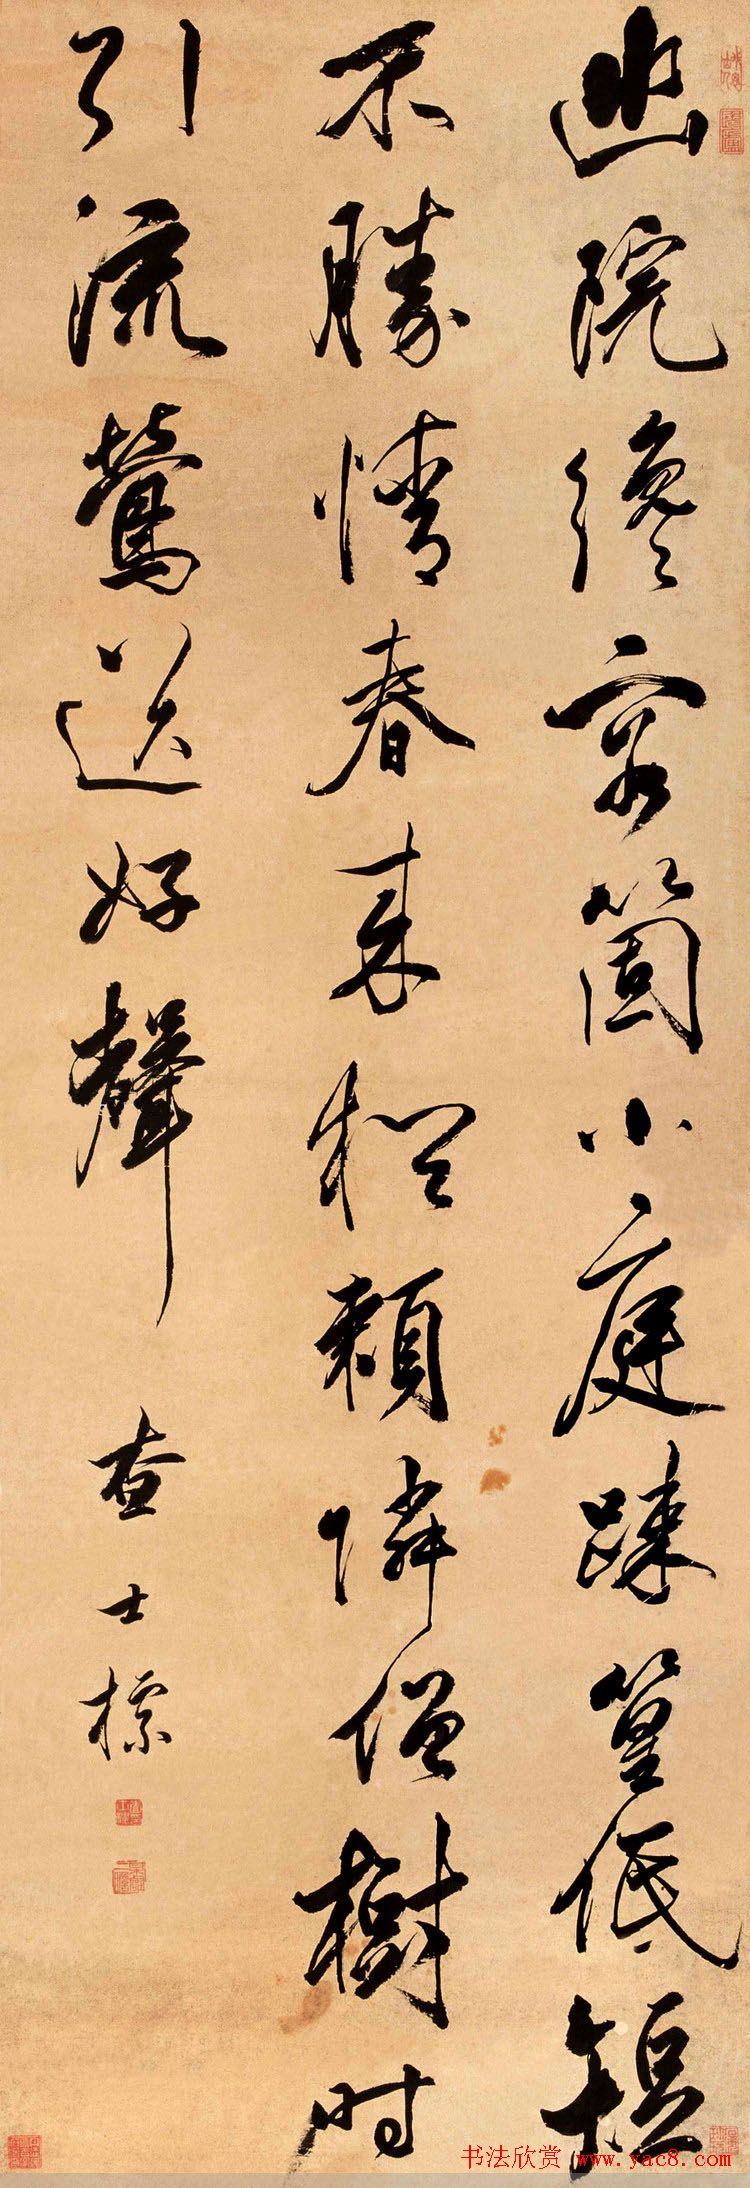 幽院纔容箇小庭疎篁低短
不勝情春來猶賴隣僧樹時
引流鶯送好聲
查士標
书法欣赏 www.yac8.com